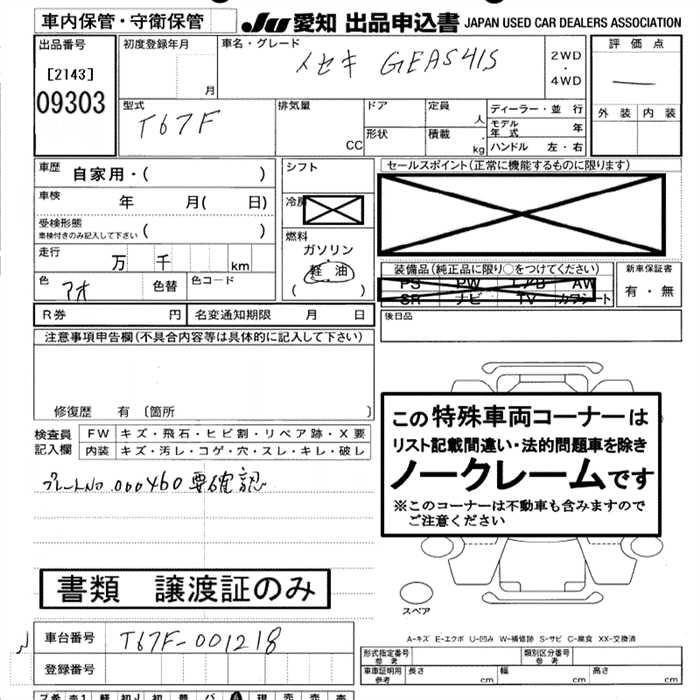 車内保管・守衛保管
JU 愛知 出品申込書 JAPAN USED CAR DEALERS ASSOCIATION
出品番号
[2143]
09303
初度登録年月
月
車名・グレード
イセキ GEAS41S
2WD
・
4WD
評価点
外装 内装
型式
T67F
排気量
CC
ドア
形状
定員
人
積載
kg
ディーラー・並 行
モデル年式 年
ハンドル 左・右
車歴
自家用・( )
車検
年 月( 日)
受検形態
車検付きのみ記入して下さい ( )
走行
万 千 km
色
アオ
色替
色コード
シフト
冷房
燃料
ガソリン
軽油
( )
セールスポイント(正常に機能するものに限ります)
装備品(純正品に限り○をつけてください)
PS PW エアB AW
SR ナビ TV カワシート
新車保証書
有・無
R券 円
名変通知期限 月 日
後日品
注意事項申告欄(不具合内容等は具体的に記入して下さい)
修復歴 有 〔箇所 〕
検査員記入欄
FW キズ・飛石・ヒビ割・リペア跡・X要
内装 キズ・汚レ・コゲ・穴・スレ・キレ・破レ
プレートNo .000460 要確認
この特殊車両コーナーは
リスト記載間違い・法的問題車を除き
ノークレームです
※このコーナーは不動車も含みますので
ご注意ください
書類 譲渡証のみ
スペア
A-キズ E-エクボ U-凹み W-補修跡 S-サビ C-腐食 XX-交換済
車台番号
T67F-001218
登録番号
形式指定番号
参考
類別区分番号
参考
車庫証明用
参考
長さ cm
幅 cm
高さ cm